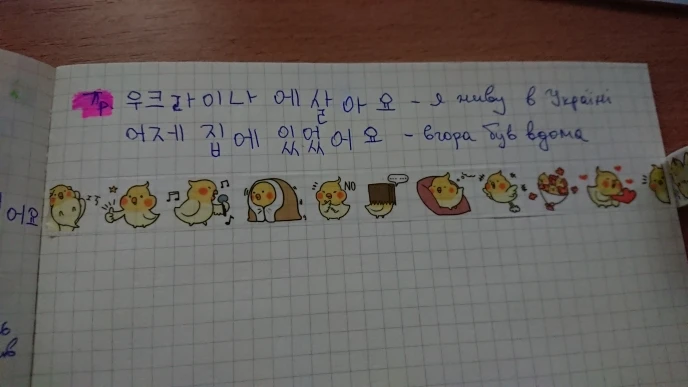 Пр 우크라이나 에 살아요 - я живу в Україні
어제 집에 있었어요 - вчора був вдома
어요
NO